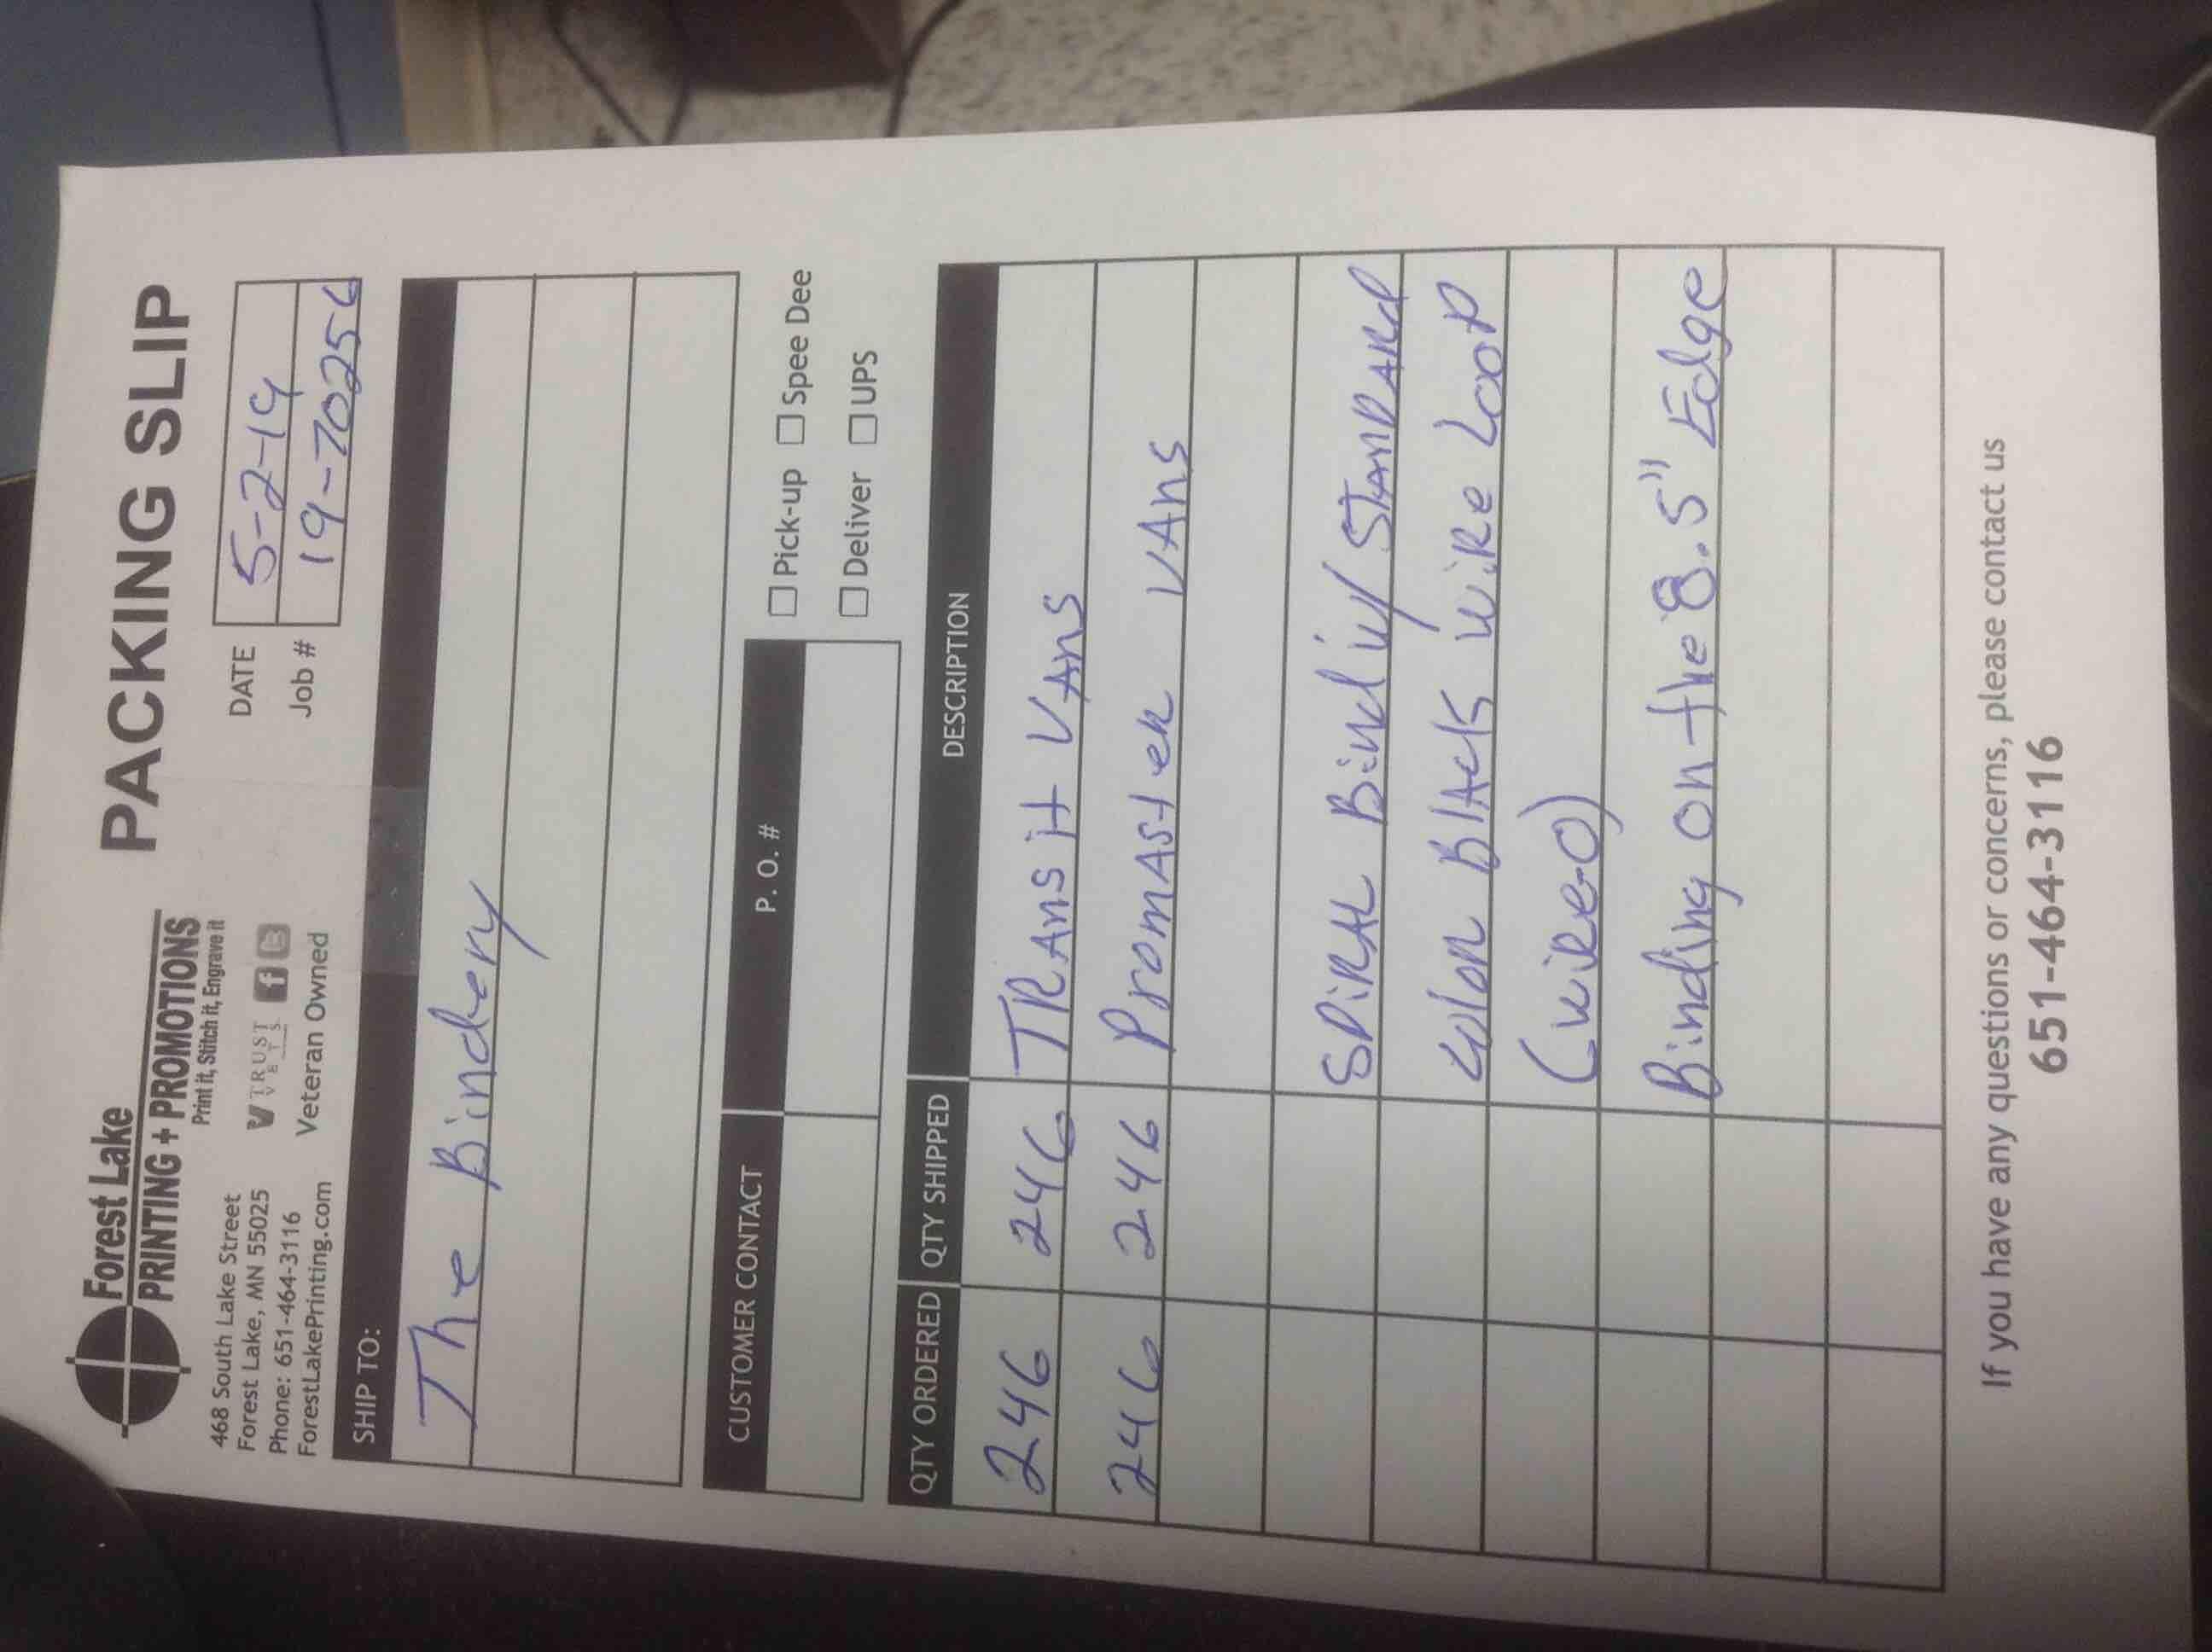 Forest Lake
PRINTING + PROMOTIONS
Print it, Stitch it, Engrave it
PACKING SLIP
468 South Lake Street
Forest Lake, MN 55025
Phone: 651-464-3116
ForestLakePrinting.com
V TRUST
VETS
Veteran Owned
DATE 5-2-19
Job # 19-70256
SHIP TO:
The Bindery
CUSTOMER CONTACT P. O. #
Pick-up Spee Dee
Deliver UPS
QTY ORDERED QTY SHIPPED DESCRIPTION
246 246 TRAnsit VAns
246 246 PromAster VAns
SPiRAL Bind w/ STANDARd
Color BlAck wiRe LooP
(wiRe-O)
Binding on the 8.5" Edge
If you have any questions or concerns, please contact us
651-464-3116